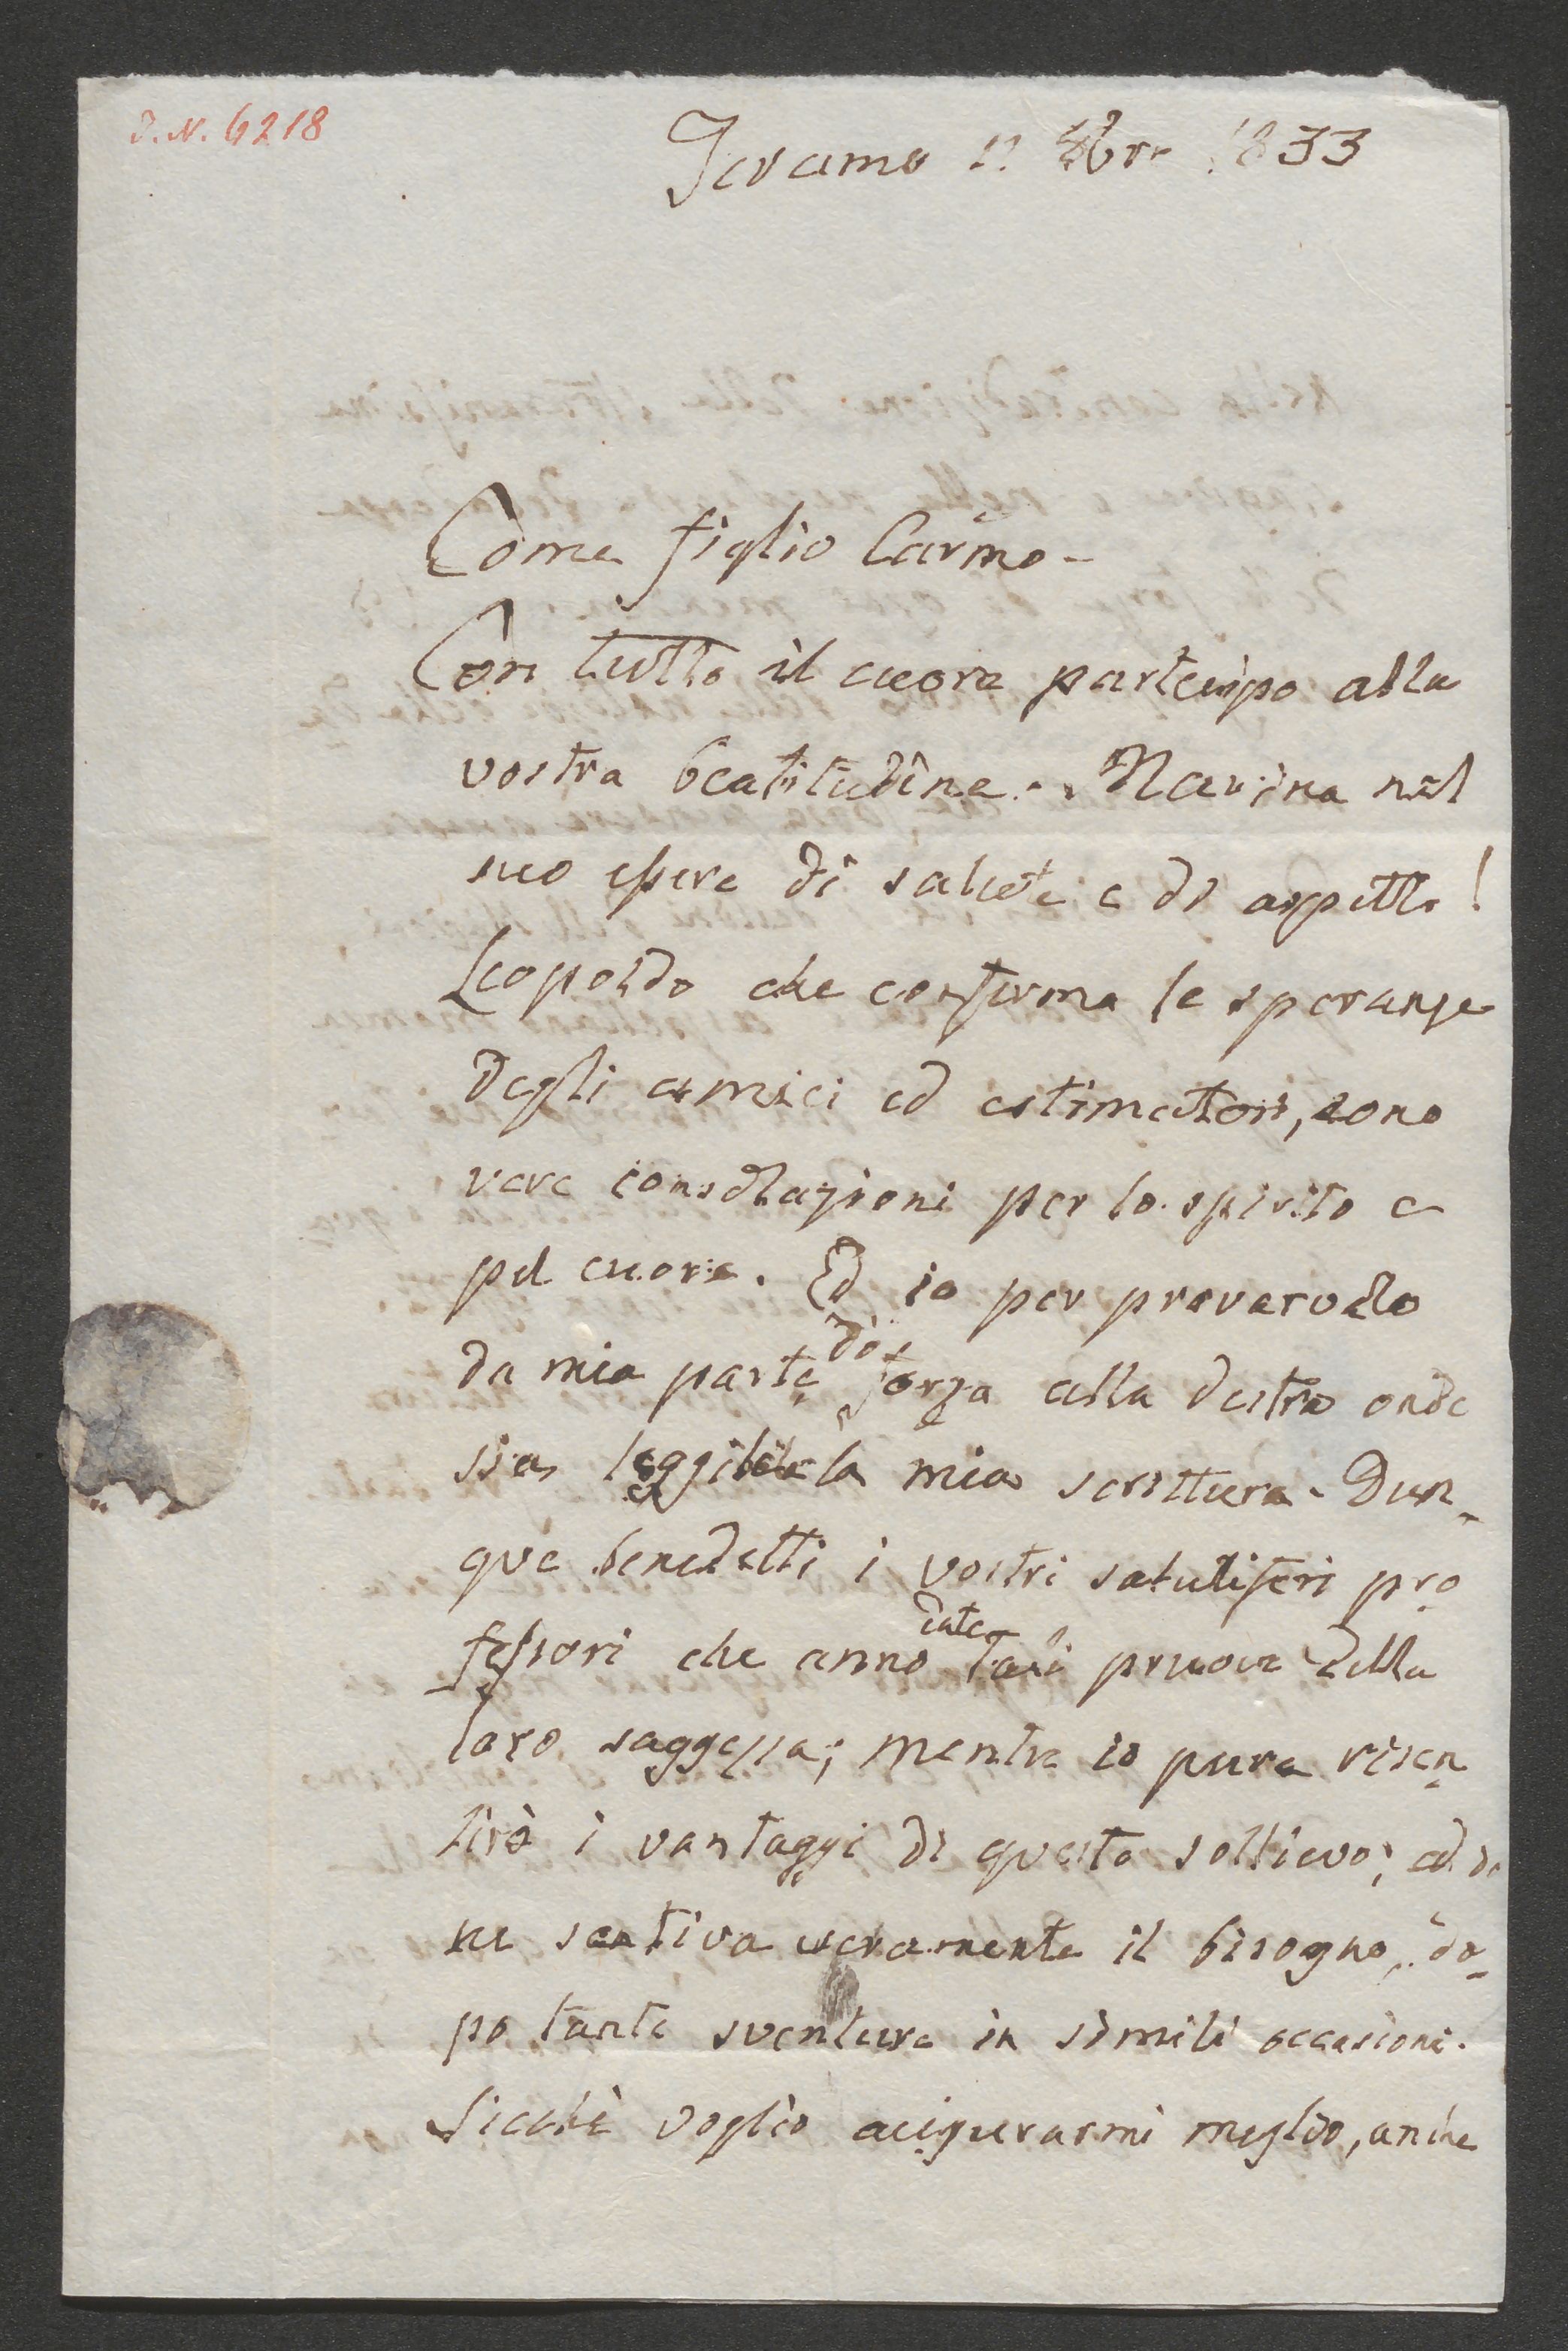 J. N. 6218
Teramo 11 Xbre 1833
Come figlio Carmo -
Con tutto il cuore partecipo alla
vostra beatitudine. Marina nel
suo essere di salute e di aspetto!
Leopoldo che conferma le speranze
degli amici ed estimatori, sono
vere consolazioni per lo spirito e
pel cuore. Ed io per provarvelo
da mia parte dò forza alla destra onde
sia leggibile la mia scrittura. Dun-
que benedetti i vostri salutiferi pro
fessori che anno date tali pruove della
loro saggezza; mentre io pure risen
tirò i vantaggi di questo sollievo; ed io
ne sentiva veramente il bisogno, do-
po tante sventure in simili occasioni.
Sicché voglio augurarmi meglio, anche